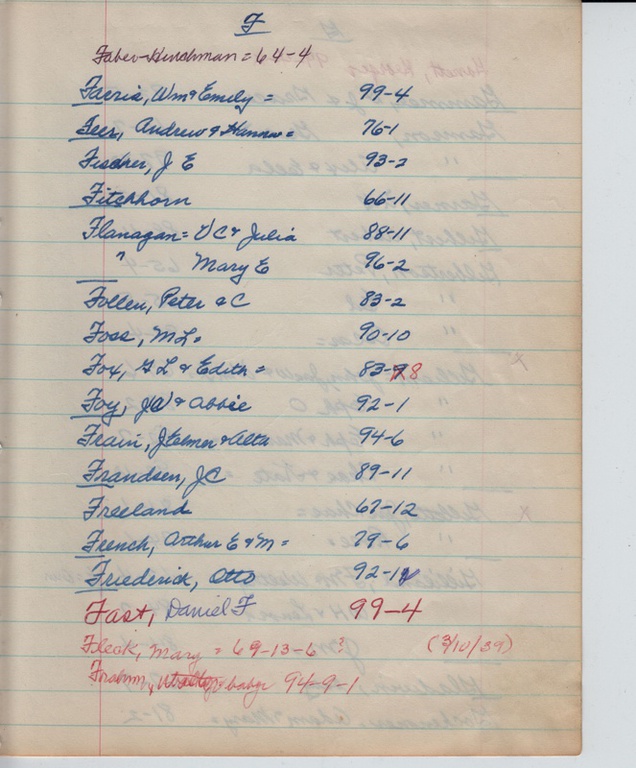 F
Faber-Hinchman = 64-4
Faeris, Wm & Emily = 99-4
Feer, Andrew & = 76-1
Fischer, J E 93-2
Fitchhorn 66-11
Flanagan = & Julia 88-11
" Mary E 96-2
Follen, Peter & C 83-2
Foss, M L = 90-10
Fox, G L & Edith = 83-8
Foy, & Abbie 92-1
J Elmer & Alta 94-6
Frandsen, JC 89-11
Freeland 67-12
French, Arthur E & M = 79-6
Friederick, Otto 92-1
Fast, Daniel F 99-4
Fleck, Mary = 69-13-6 ? (3/10/39)
baby 94-9-1